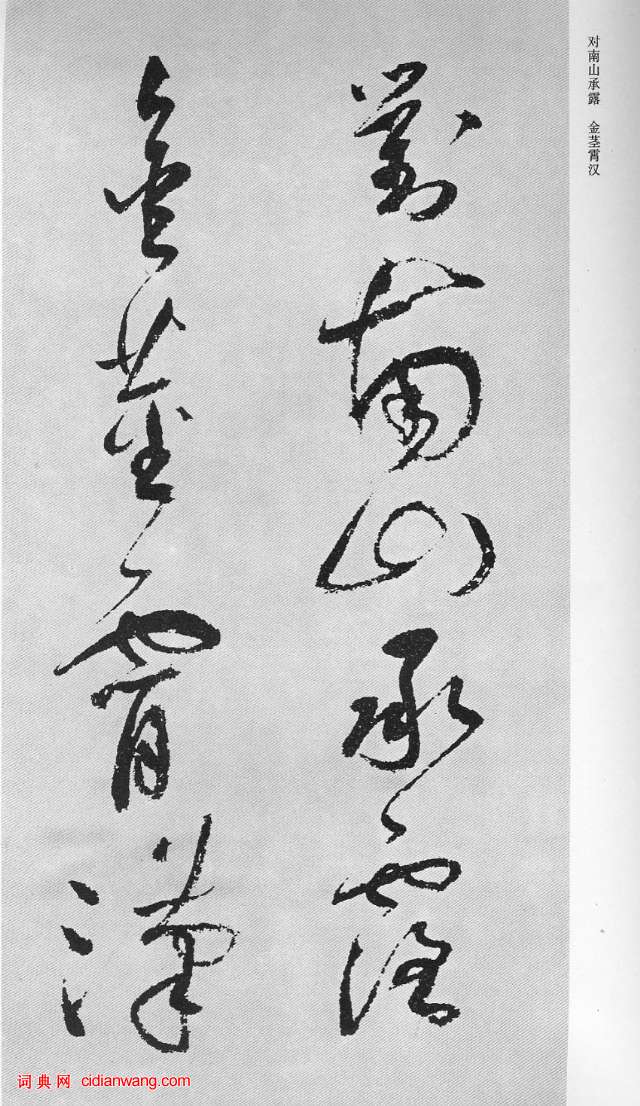 对南山承露 金茎霄汉
對南山承露
金莖霄漢
词典网 cidianwang.com